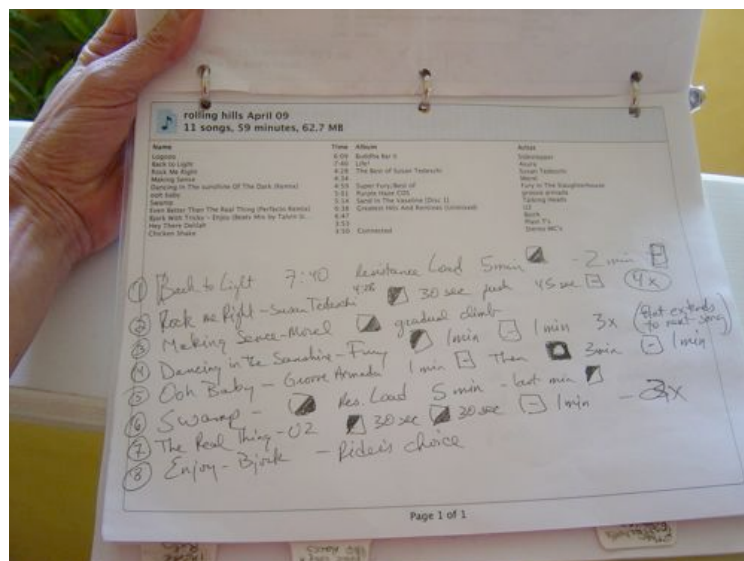 rolling hills April 09
11 songs, 59 minutes, 62.7 MB
Name Time Album Artist
Logozo 6:09 Buddha Bar II
Back to Light 7:40 Life² Asura
Rock Me Right 4:28 The Best of Susan Tedeschi Susan Tedeschi
Making Sense 4:34 Morel
Dancing In The sunshine Of The Dark (remix) 4:59 Super Fury/Best of Fury In The Slaughterhouse
ooh baby 5:01 Purple Haze CD5 groove armada
Swamp 5:14 Sand In The Vaseline (Disc 1) Talking Heads
Even Better Than The Real Thing (Perfecto Remix) 6:38 Greatest Hits And Remixes U2
Bjork With Tricky - Enjoy (Beats Mix by Talvin Si... 6:47 Bjork
Hey There Delilah 3:53 Plain T's
Chicken Shake 3:50 Connected Stereo MC's
① Back to Light 7:40 Resistance Load 5min - 2 min F
② Rock me Right - Susan Tedeschi 4:28 30 sec push 45 sec (4x)
③ Making Sence - Morel gradual climb
④ Dancing in the Sunshine - Fury 1min 1min 3x (flat extends to next song)
⑤ Ooh Baby - Groove Armada 1 min Then 3min 1 min
⑥ Swamp - Res. Load 5 min - last min
⑦ The Real Thing - U2 30 sec 30 sec 1min - 3x
⑧ Enjoy - Bjork - Rider's choice
Page 1 of 1